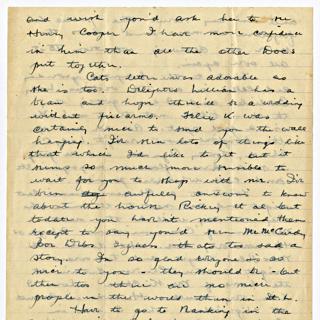 and wish you'd ask her to see
Henry Cooper I have more confidence
in him than all the other Docs
put together.
Cat's letter was adorable as
she is too. Delighted Lillian has a
beau and hope there'll be a wedding
without firearms. Felix K. was
certainly nice to send you the wall
hanging. I've seen lots of things like
that which I'd like to get but it
seems so much more sensible to
wait for you to shop with me. I've
been awfully anxious to know
about the house et al but
to date you haven't mentioned them
except to say you'd seen Mr. McCurdy
Poor Dibs. I guess that's too sad a
story. I'm so glad everyone is so
nice to you - they should be - but
then too there are no nicer
people in the world than in St. L.
Have to go to Nanking in the